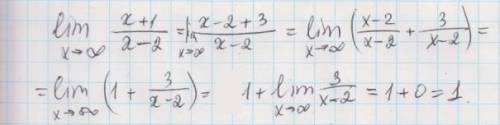 lim x→∞ (x+1)/(x−2) = lim x→∞ (x−2+3)/(x−2) = lim x→∞ ((x−2)/(x−2) + 3/(x−2)) =
= lim x→∞ (1 + 3/(x−2)) = 1 + lim x→∞ 3/(x−2) = 1+0 = 1.